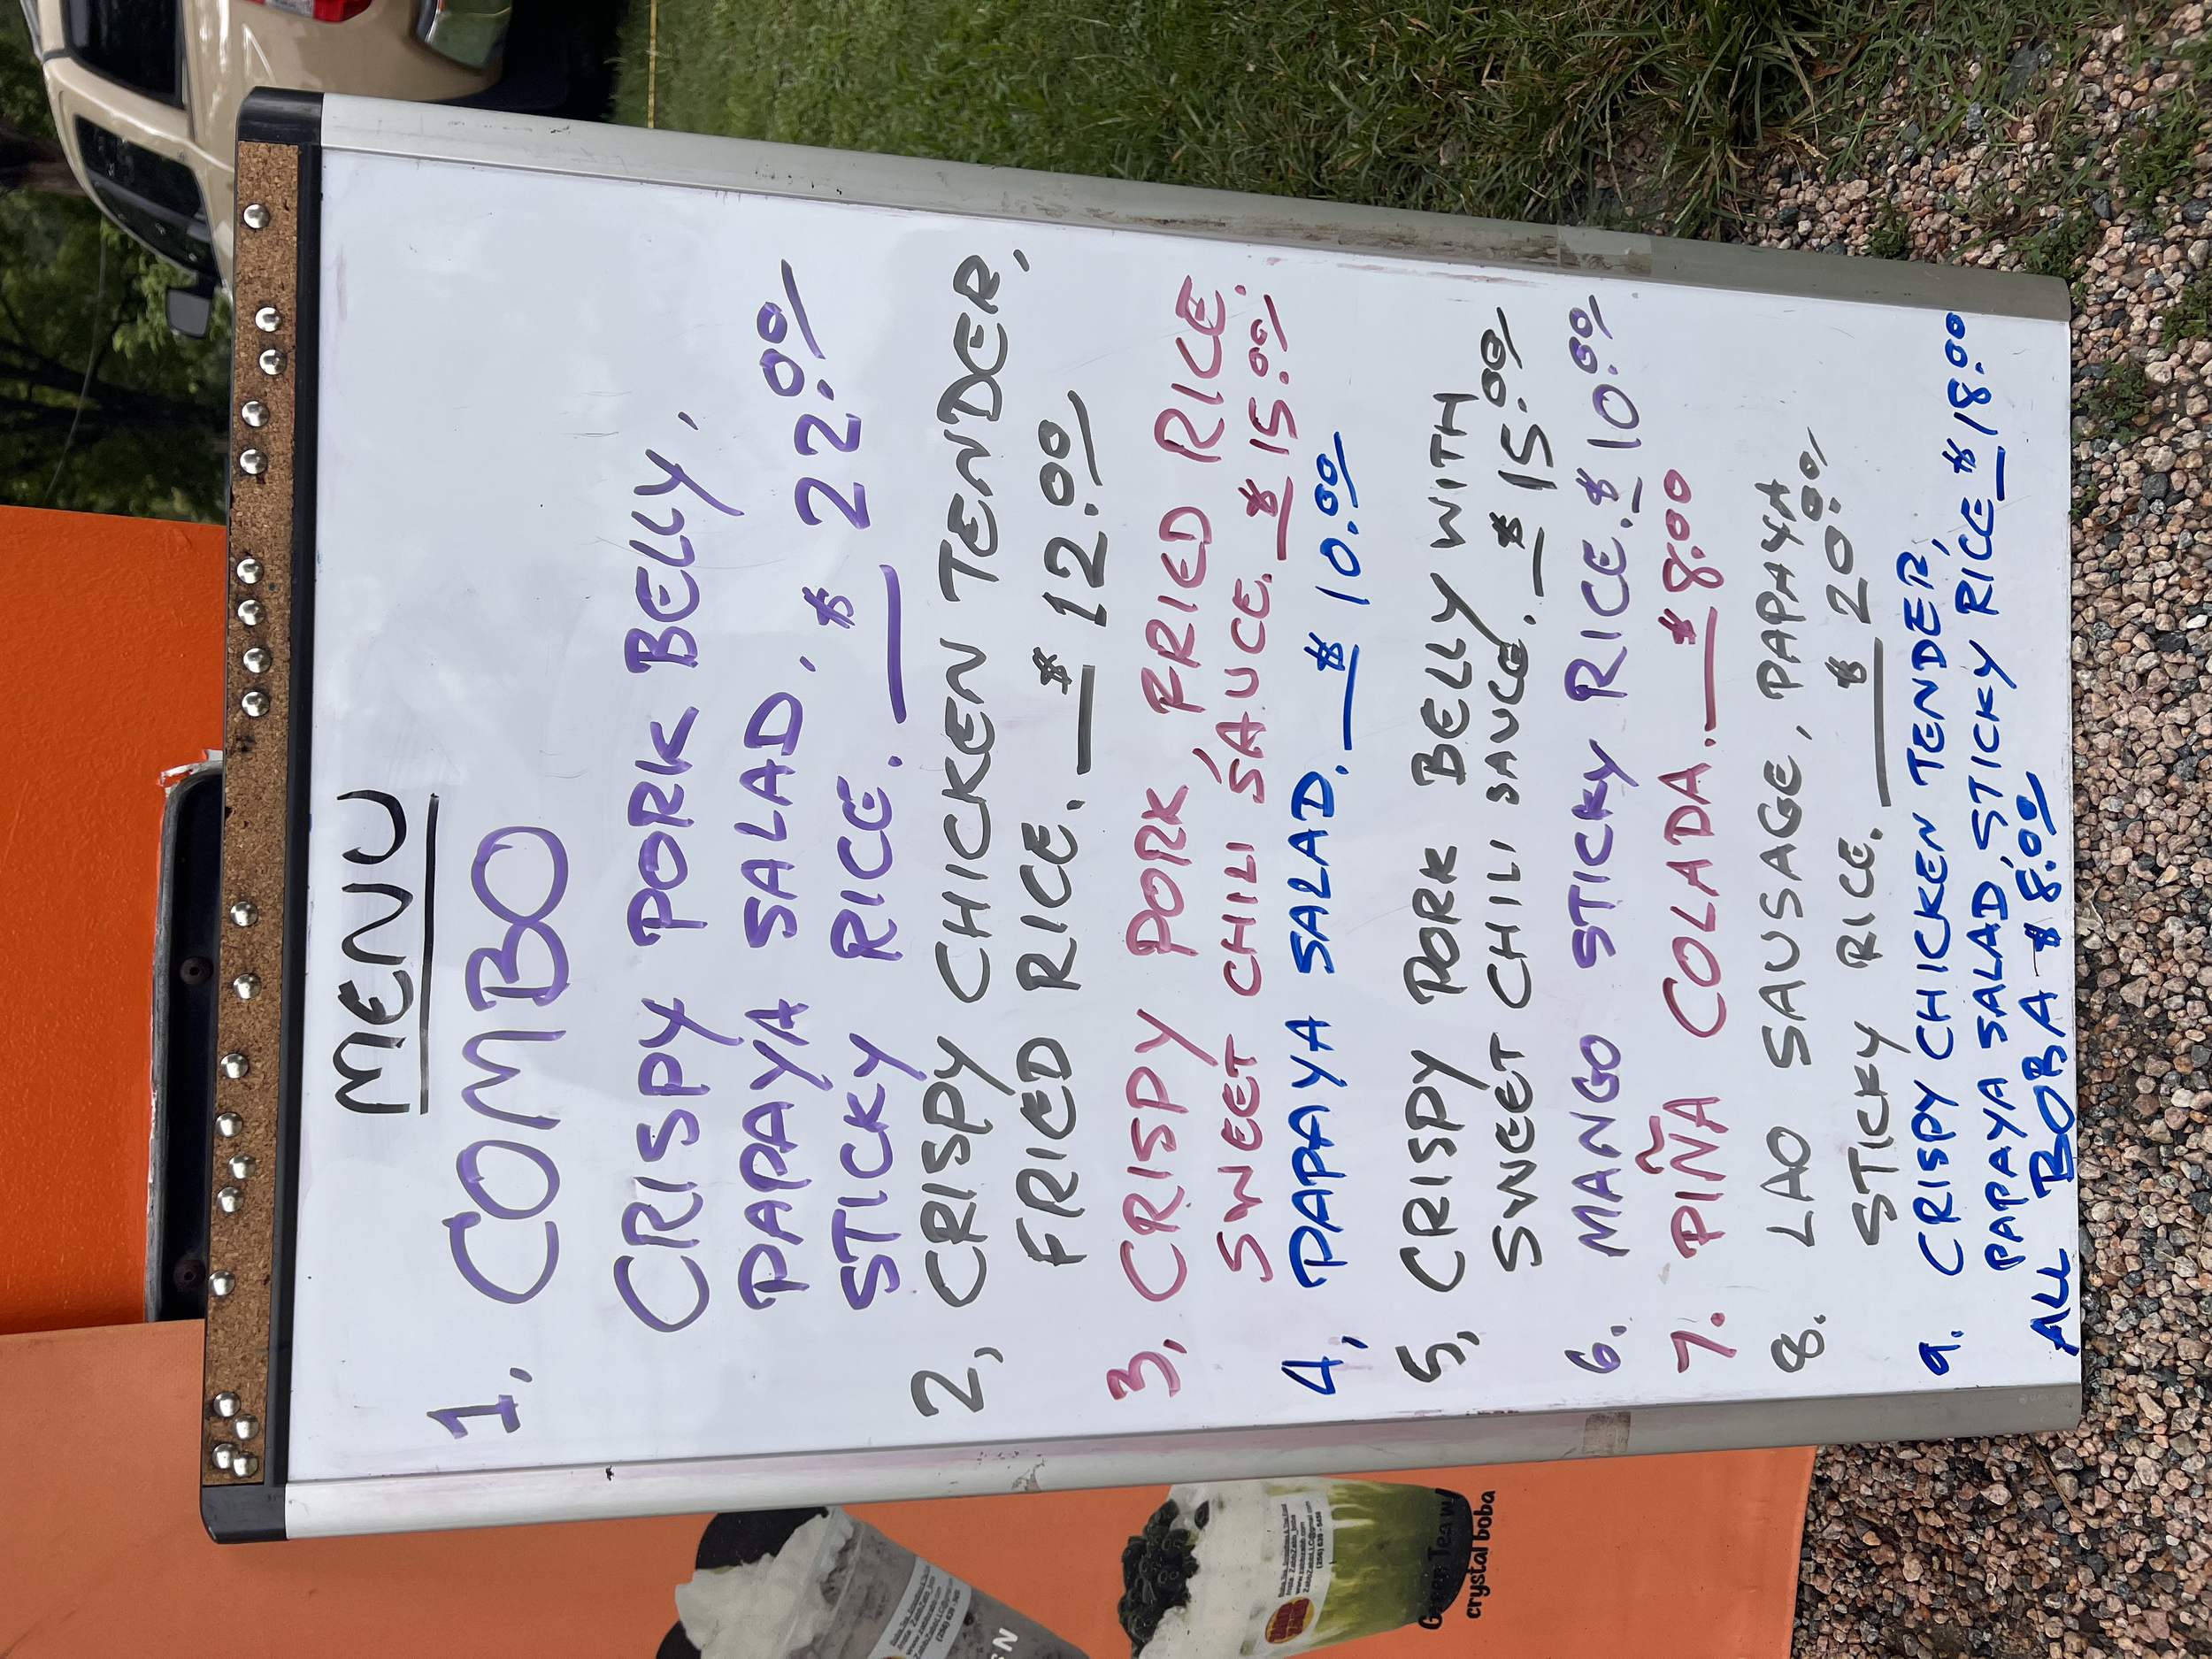 MENU
1, COMBO
CRISPY PORK BELLY,
PAPAYA SALAD,
STICKY RICE. $ 22.00
2, CRISPY CHICKEN TENDER,
FRIED RICE. $ 12.00
3, CRISPY PORK, FRIED RICE.
SWEET CHILI SAUCE. $ 15.00
4, PAPAYA SALAD. $ 10.00
5, CRISPY PORK BELLY WITH
SWEET CHILI SAUCE. $ 15.00
6. MANGO STICKY RICE. $ 10.00
7. PIÑA COLADA. $ 8.00
8. LAO SAUSAGE, PAPAYA
STICKY RICE. $ 20.00
9. CRISPY CHICKEN TENDER,
PAPAYA SALAD, STICKY RICE $ 18.00
ALL BOBA $ 8.00
crystal boba